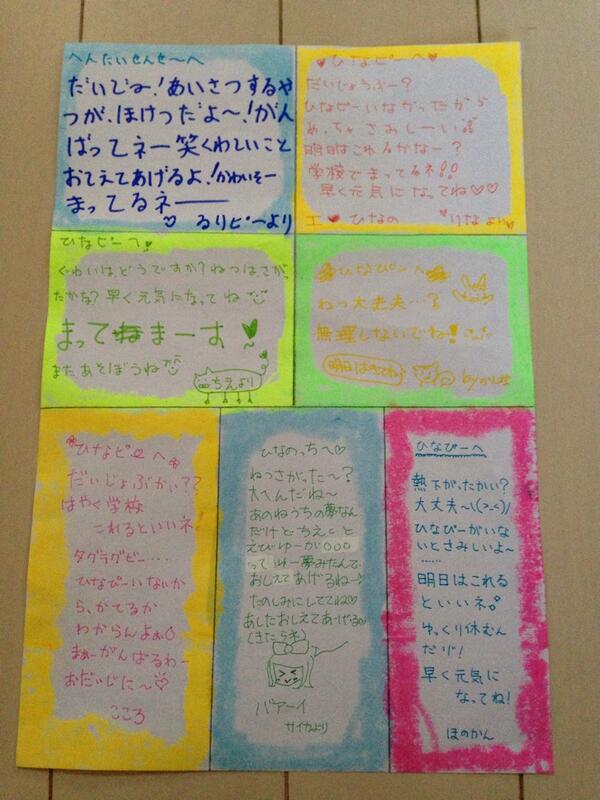 へんたいせんせ〜へ
だいじょ!あいさつするや
つが、ほけつだよ〜!がん
ばってネー笑くわしいこと
おてえてあげるよ!かわいそー
まってるネー
♡ るりピーより
♥ひなピーへ♥
だいじょうぶー?
ひなピーいなかったから
めっちゃさみしーい
明日はこれるかなー?
学校でまってるネ!!
早く元気になってね♡♡
ひなの りなより
ひなピーへ
ぐあいは、どうですか?ねつはさが
たかな?早く元気になってね
まってまーす
またあそぼうね
ちえより
ひなぴーへ
ねつ大丈夫…?
無理しないでね!
明日はきてね
by
ひなピーへ
だいじょぶかい??
はやく学校
これるといいネ
タグラグビー…
ひなぴーいないか
ら、かてるか
わからんよぉ
まぁーがんばるわー
おだいじに〜♡
こころ
ひなのっちへ♡
ねつさがった〜?
大へんだね〜
あのねうちの夢なん
だけどちえと
えびゅーが○○○
ってゆー夢みたんで
おしえてあげるねー
たのしみにしててね♡
あしたおしえてあげる
(きたらネ)
バァーイ
サイカより
ひなぴーへ
熱下がったかい?
大丈夫〜\(>_<)/
ひなぴーがいな
いとさみしいよ〜
……
明日はこれる
といいネ
ゆっくり休むん
だゾ!
早く元気に
なってね!
ほのかん